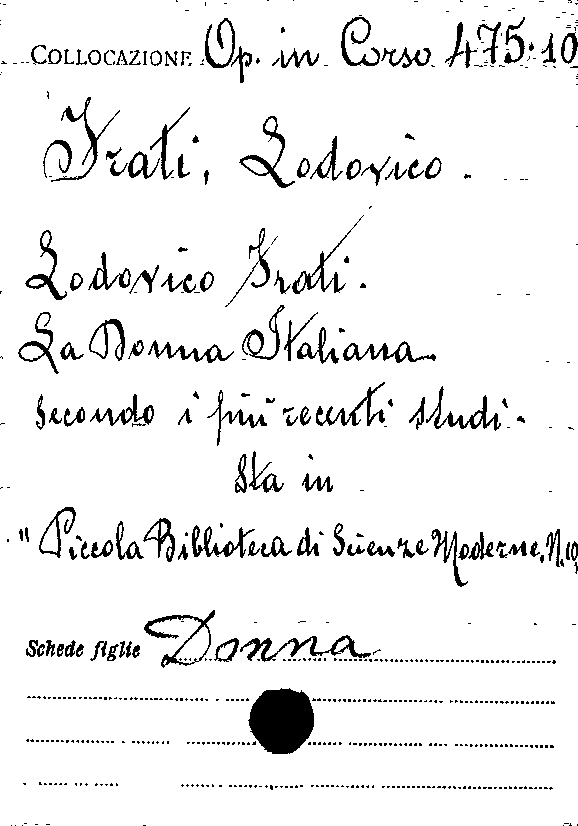 COLLOCAZIONE Op. in Corso 475.10
Frati, Lodovico.
Lodovico Frati.
La Donna Italiana
secondo i più recenti studi.
Sta in
"Piccola Biblioteca di Scienze Moderne. N.
Schede figlie Donna